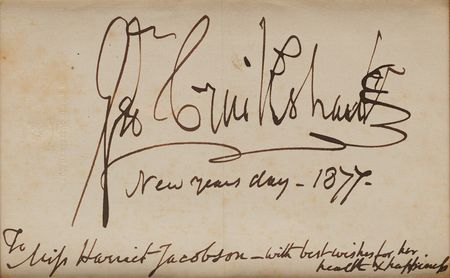 Geo Cruikshank
New years day - 1877 -
To
Miss Harriet Jacobson - with best wishes for her
health & happiness